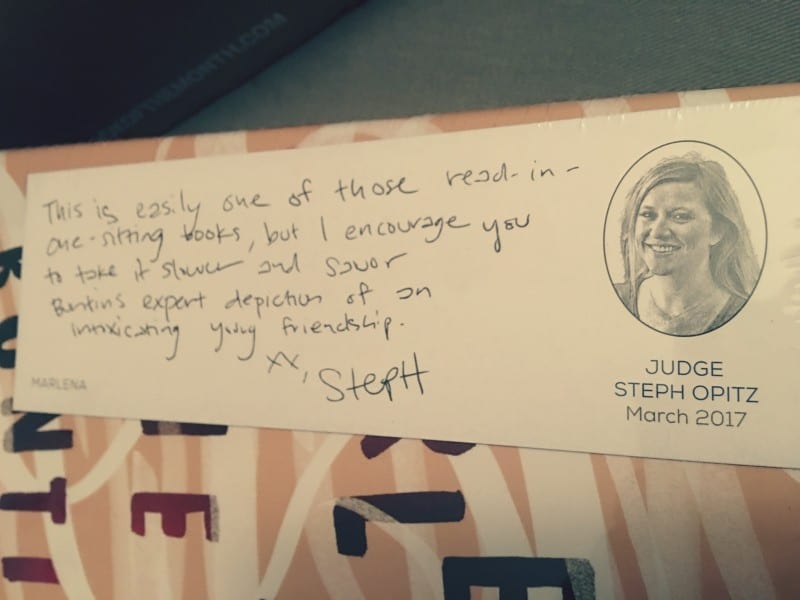 OFTHEMONTH.COM
This is easily one of those read-in-
one-sitting books, but I encourage you
to take it slower and savor
Buntin's expert depiction of an
intoxicating young friendship.
xx, StepH
MARLENA
JUDGE
STEPH OPITZ
March 2017
BUNTI